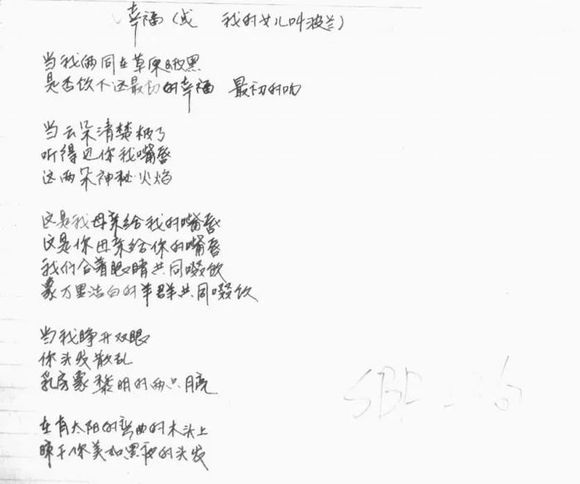 幸福(或 我的女儿叫波兰)
当我俩同在草原晒黑
是否饮下这最初的幸福 最初的吻
当云朵清楚极了
听得见你我嘴唇
这两朵神秘火焰
这是我母亲给我的嘴唇
这是你母亲给你的嘴唇
我们合着眼睛共同啜饮
象万里洁白的羊群共同啜饮
当我睁开双眼
你头发散乱
乳房象黎明的两只月亮
在有太阳的弯曲的木头上
晾干你美如黑夜的头发